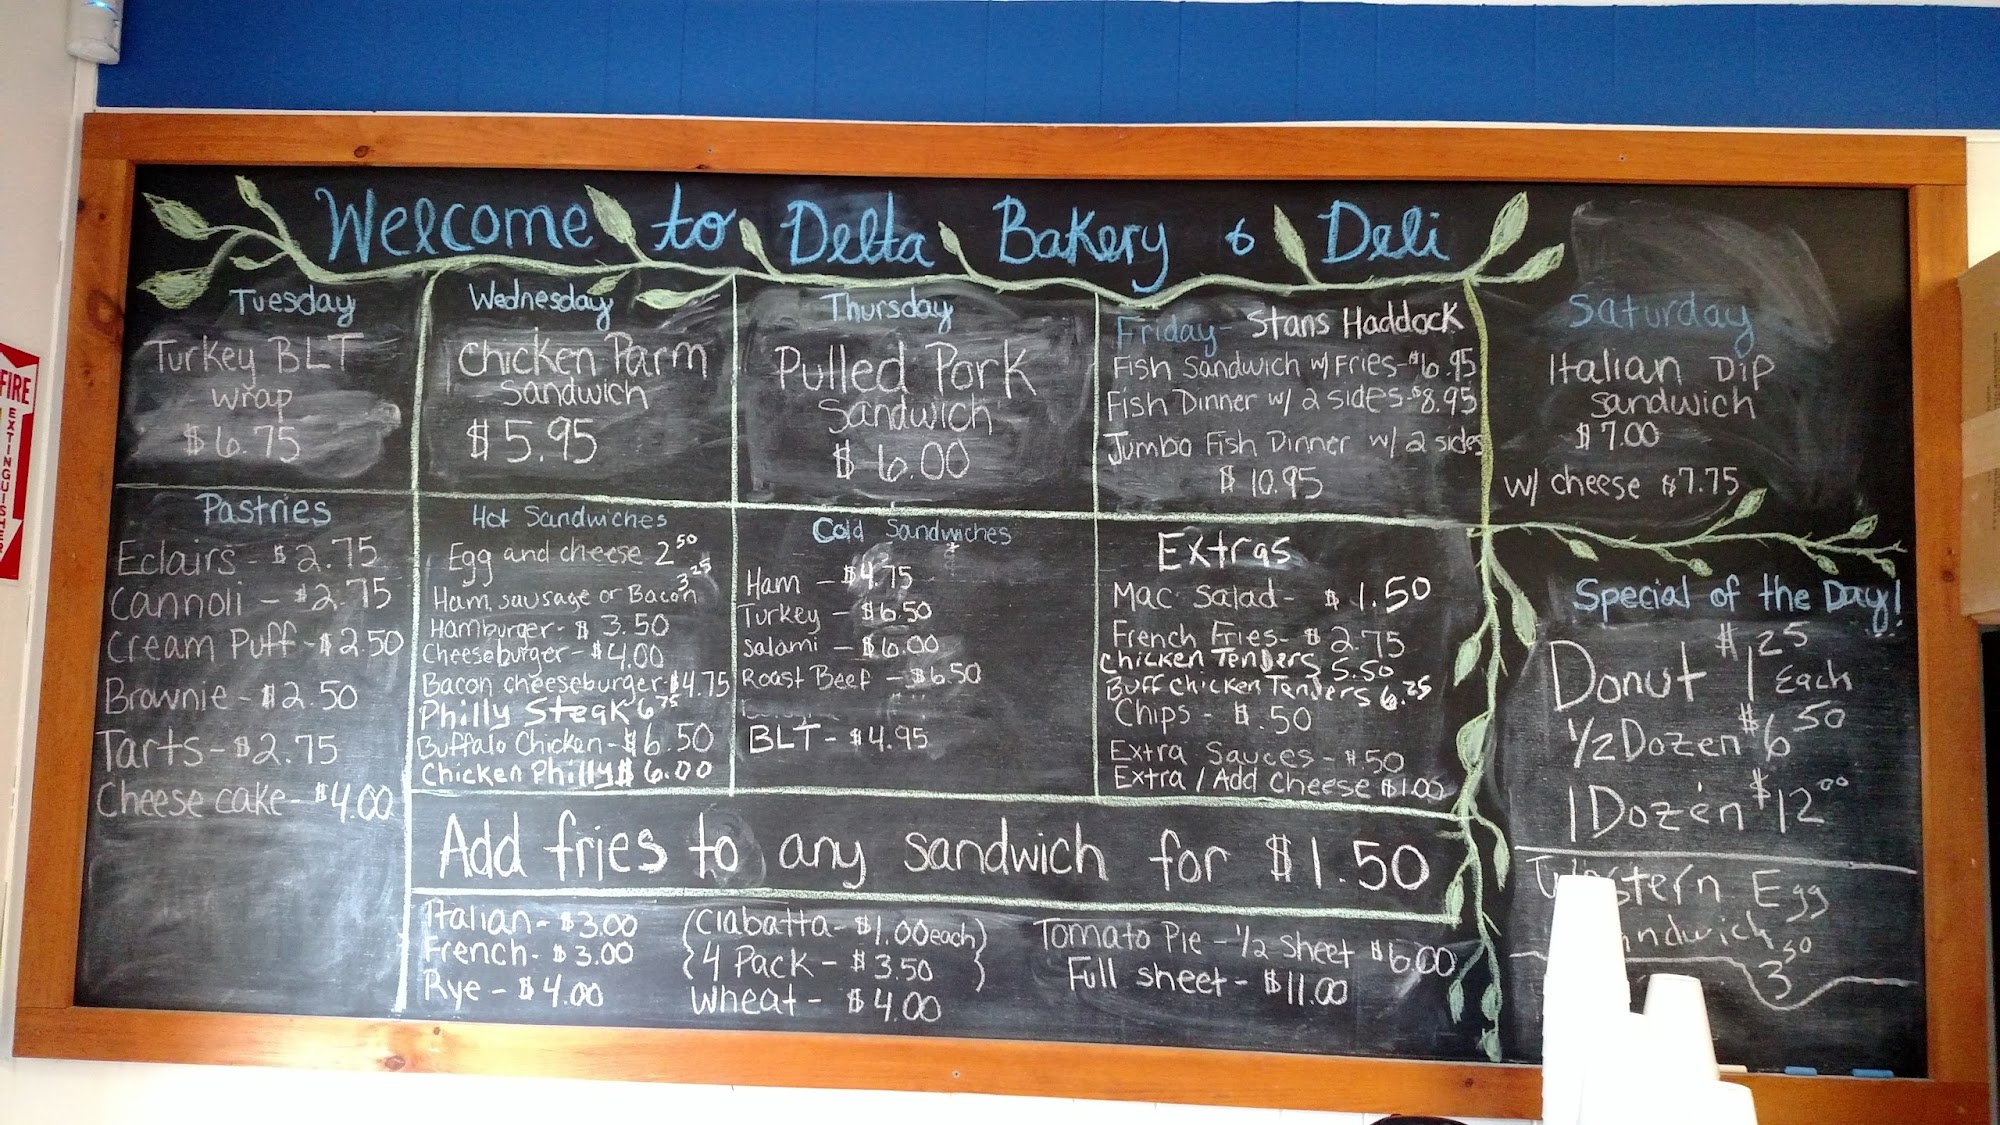 Welcome to Delta Bakery & Deli
Tuesday
Turkey BLT
wrap
$6.75
Wednesday
Chicken Parm
sandwich
$5.95
Thursday
Pulled Pork
Sandwich
$6.00
Friday- Stans Haddock
Fish Sandwich w/ Fries-$6.95
Fish Dinner w/ 2 sides-$8.95
Jumbo Fish Dinner w/ 2 sides
$10.95
Saturday
Italian Dip
sandwich
$7.00
w/ cheese $7.75
Pastries
Eclairs - $2.75
Cannoli - $2.75
Cream Puff-$2.50
Brownie-$2.50
Tarts-$2.75
Cheese cake-$4.00
Hot Sandwiches
Egg and cheese 2 50
Ham, sausage or Bacon 3 25
Hamburger-$3.50
Cheeseburger-$4.00
Bacon cheeseburger-$4.75
Philly Steak 6 75
Buffalo Chicken-$6.50
Chicken Philly $6.00
Cold Sandwiches
Ham - $4.75
Turkey - $6.50
Salami - $6.00
Roast Beef - $6.50
BLT - $4.95
Extras
Mac Salad- $1.50
French Fries- $2.75
Chicken Tenders 5.50
Buff Chicken Tenders 6.25
Chips - $.50
Extra Sauces - $.50
Extra / Add Cheese $1.00
Special of the Day!
Donut $1 25 Each
1/2 Dozen $6 50
1 Dozen $12 00
Egg
3 50
Add fries to any sandwich for $1.50
Italian-$3.00
French-$3.00
Rye-$4.00
(Ciabatta-$1.00 each)
{4 Pack-$3.50}
Wheat-$4.00
Tomato Pie-1/2 Sheet $6.00
Full sheet-$11.00
FIRE
EXTINGUISHER